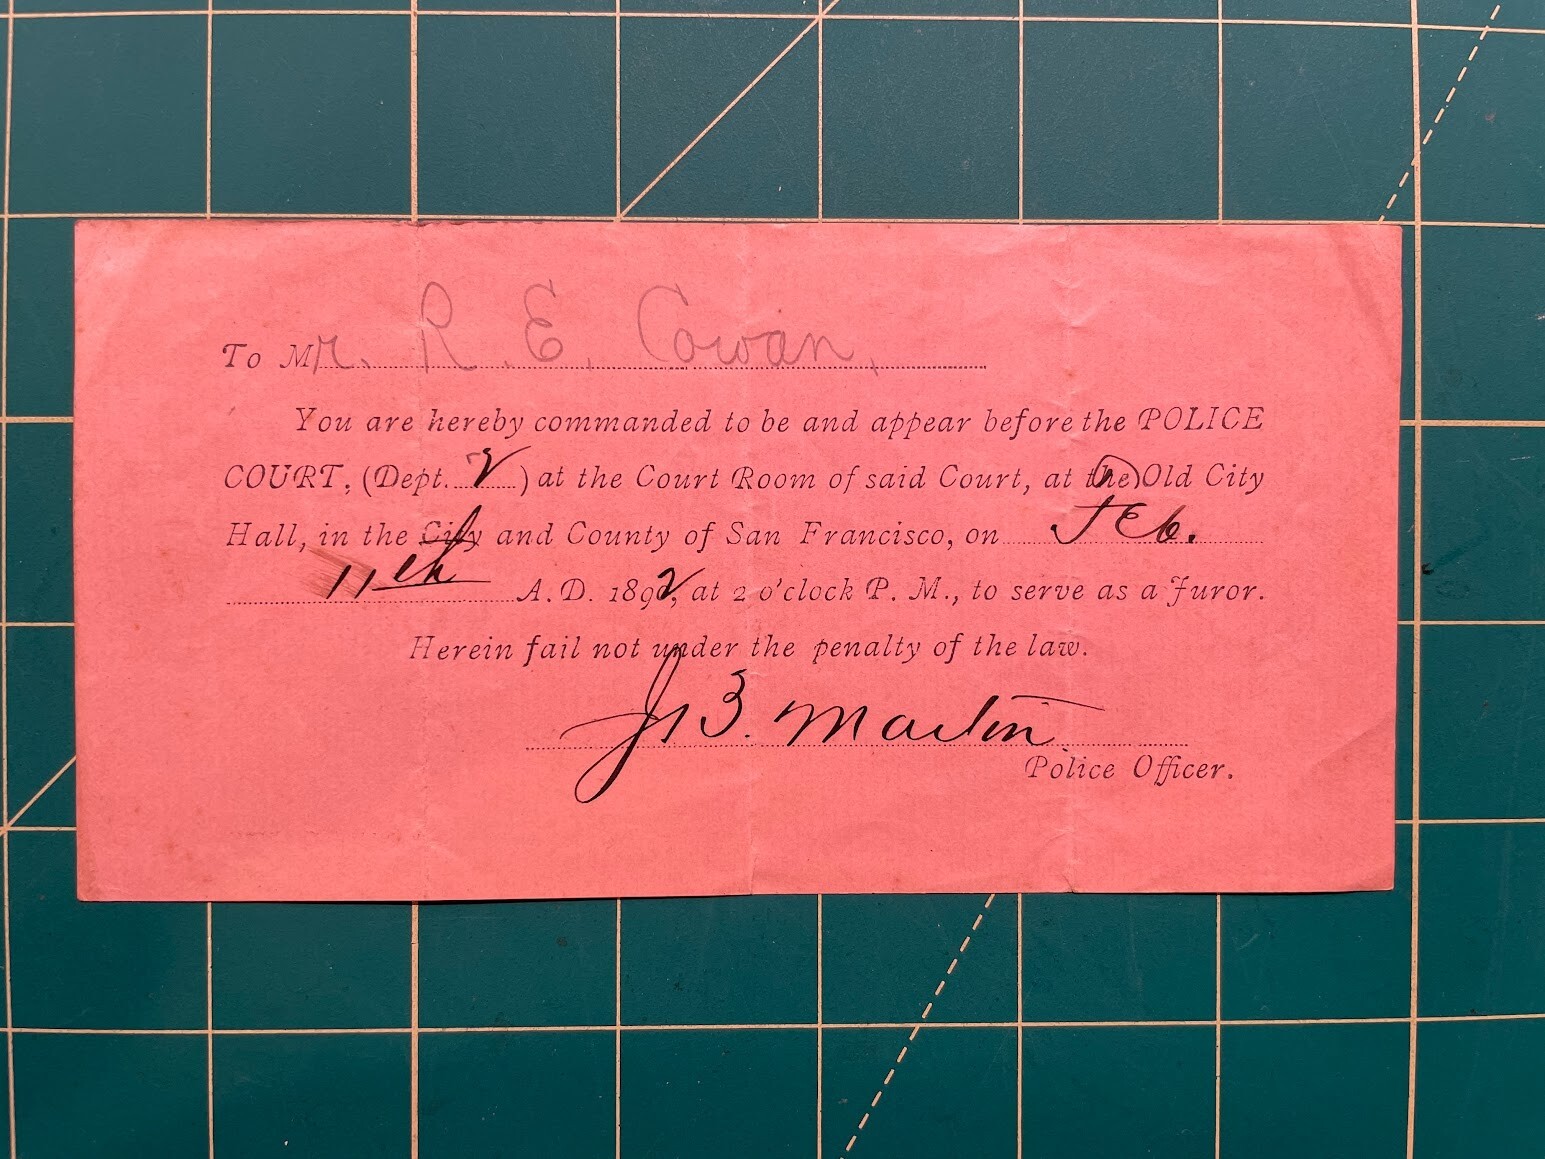 To Mr. R. E. Cowan,
You are hereby commanded to be and appear before the POLICE
COURT, (Dept. 2) at the Court Room of said Court, at the Old City
Hall, in the City and County of San Francisco, on Feb.
11th A. D. 1892, at 2 o'clock P. M., to serve as a Juror.
Herein fail not under the penalty of the law.
B. Martin
Police Officer.